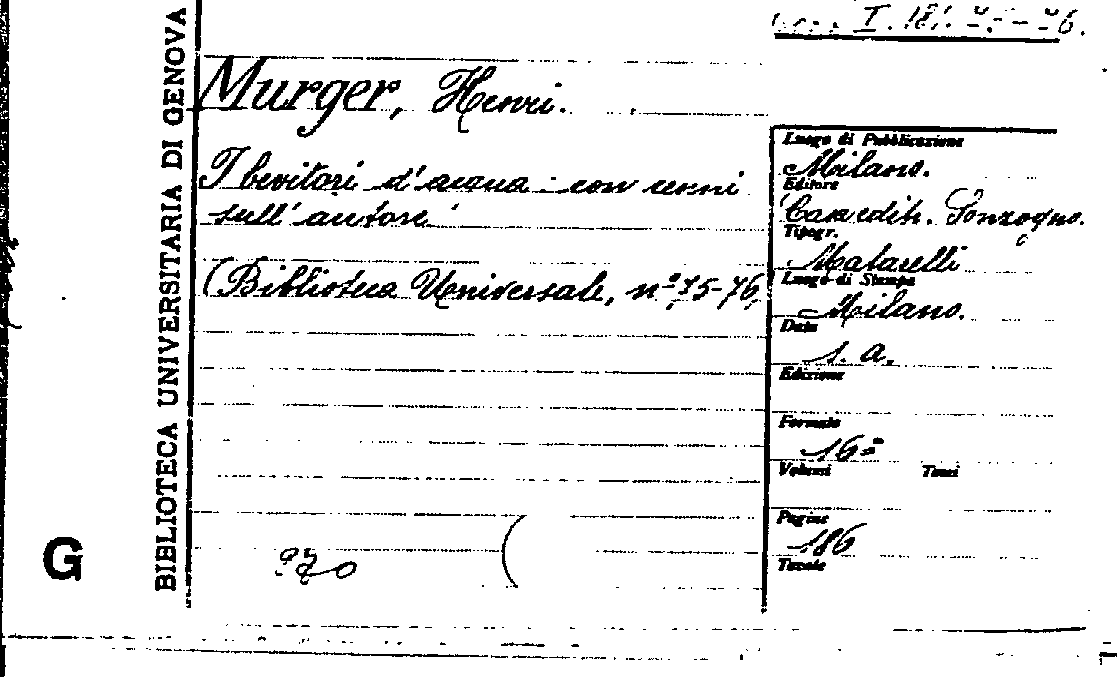 I. 181. 75-76.
BIBLIOTECA UNIVERSITARIA DI GENOVA
G
Murger, Henri.
I bevitori d'acqua - con cenni
sull'autore
(Biblioteca Universale, nº 75-76)
Luogo di Pubblicazione
Milano.
Editore
Casa edit. Sonzogno.
Tipogr.
Matarelli
Luogo di Stampa
Milano.
Data
s. a.
Edizione
Formato
16º
Volumi Tomi
Pagine
186
Tavole